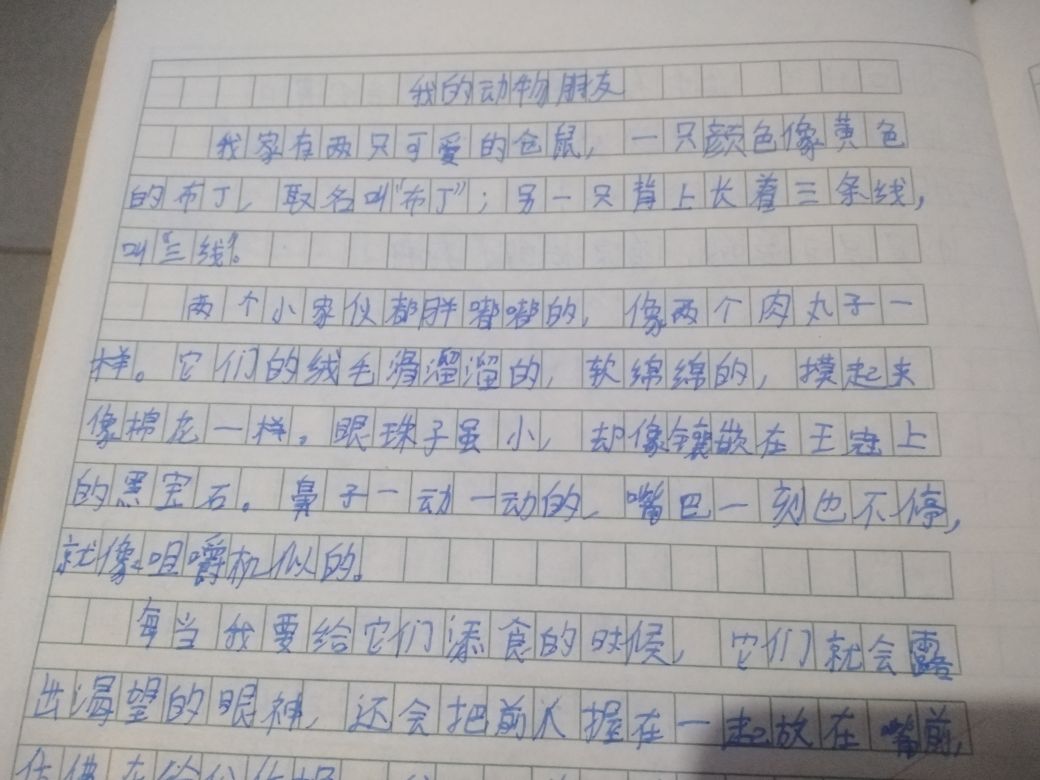 我的动物朋友
我家有两只可爱的仓鼠，一只颜色像黄色
的布丁，取名叫“布丁”；另一只背上长着三条线，
叫“三线”。
两个小家伙都胖嘟嘟的，像两个肉丸子一
样。它们的绒毛滑溜溜的，软绵绵的，摸起来
像棉花一样。眼珠子虽小，却像镶嵌在王冠上
的黑宝石。鼻子一动一动的，嘴巴一刻也不停，
就像咀嚼机似的。
每当我要给它们添食的时候，它们就会露
出渴望的眼神，还会把前爪握在一起放在嘴前，